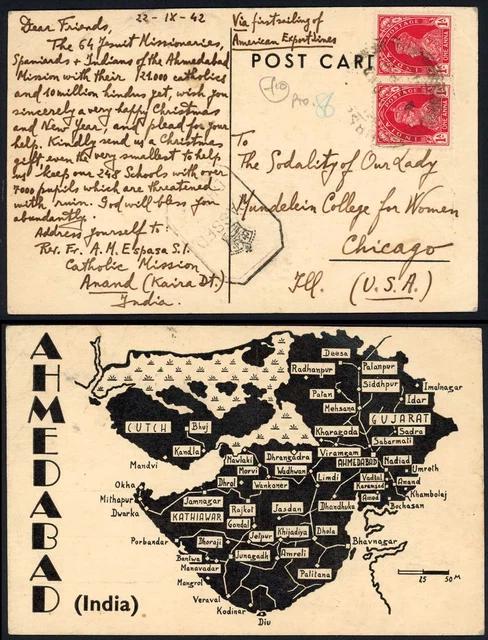 22-IX-42
Dear Friends,
The 64 Jesuit Missionaries,
Spaniards + Indians of the Ahmedabad
Mission with their 21000 catholics
and 10 million hindus yet, wish you
sincerely a very happy Christmas
and New Year, and plead for your
help. Kindly send us a Christmas
gift even the very smallest to help
us keep our 248 Schools with over
7000 pupils which are threatened
with ruin. God will bless you
abundantly.
Address yourself to
Rev. Fr. A. M. Espasa S.I.
Catholic Mission
Anand (Kaira Dt.)
India.
Via first sailing of
American Export Lines
POST CARD
POSTAGE
INDIA
ONE ANNA
POSTAGE
INDIA
ONE ANNA
To
The Sodality of Our Lady
Mundelein College for Women
Chicago
Ill. (U.S.A.)
AHMEDABAD
(India)
Deesa
Radhanpur
Palanpur
Siddhpur
Idar
Patan
Mehsana
GUJARAT
Kharagoda
Sadra
Sabarmati
CUTCH
Bhuj
Kandla
Mandvi
Viramgam
AHMEDABAD
Nadiad
Umreth
Dhrangadra
Morvi
Wadhwan
Limdi
Vadtal
Anand
Okha
Dhrol
Wankaner
Mithapur
Jamnagar
Dwarka
KATHIAWAR
Rajkot
Jasdan
Dhandhuka
Gondal
Porbandar
Dhoraji
Jetpur
Khijadiya
Dhola
Bhavnagar
Junagadh
Amreli
Manavadar
Mangrol
Palitana
Veraval
Kodinar
Diu
25 50 M